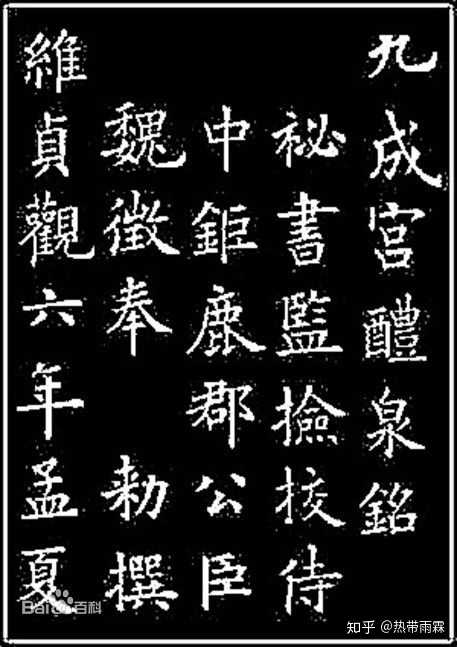 九成宮醴泉銘
祕書監撿挍侍
中鉅鹿郡公臣
魏徵奉 勑撰
維貞觀六年孟夏
Bai百科
知乎 @热带雨霖